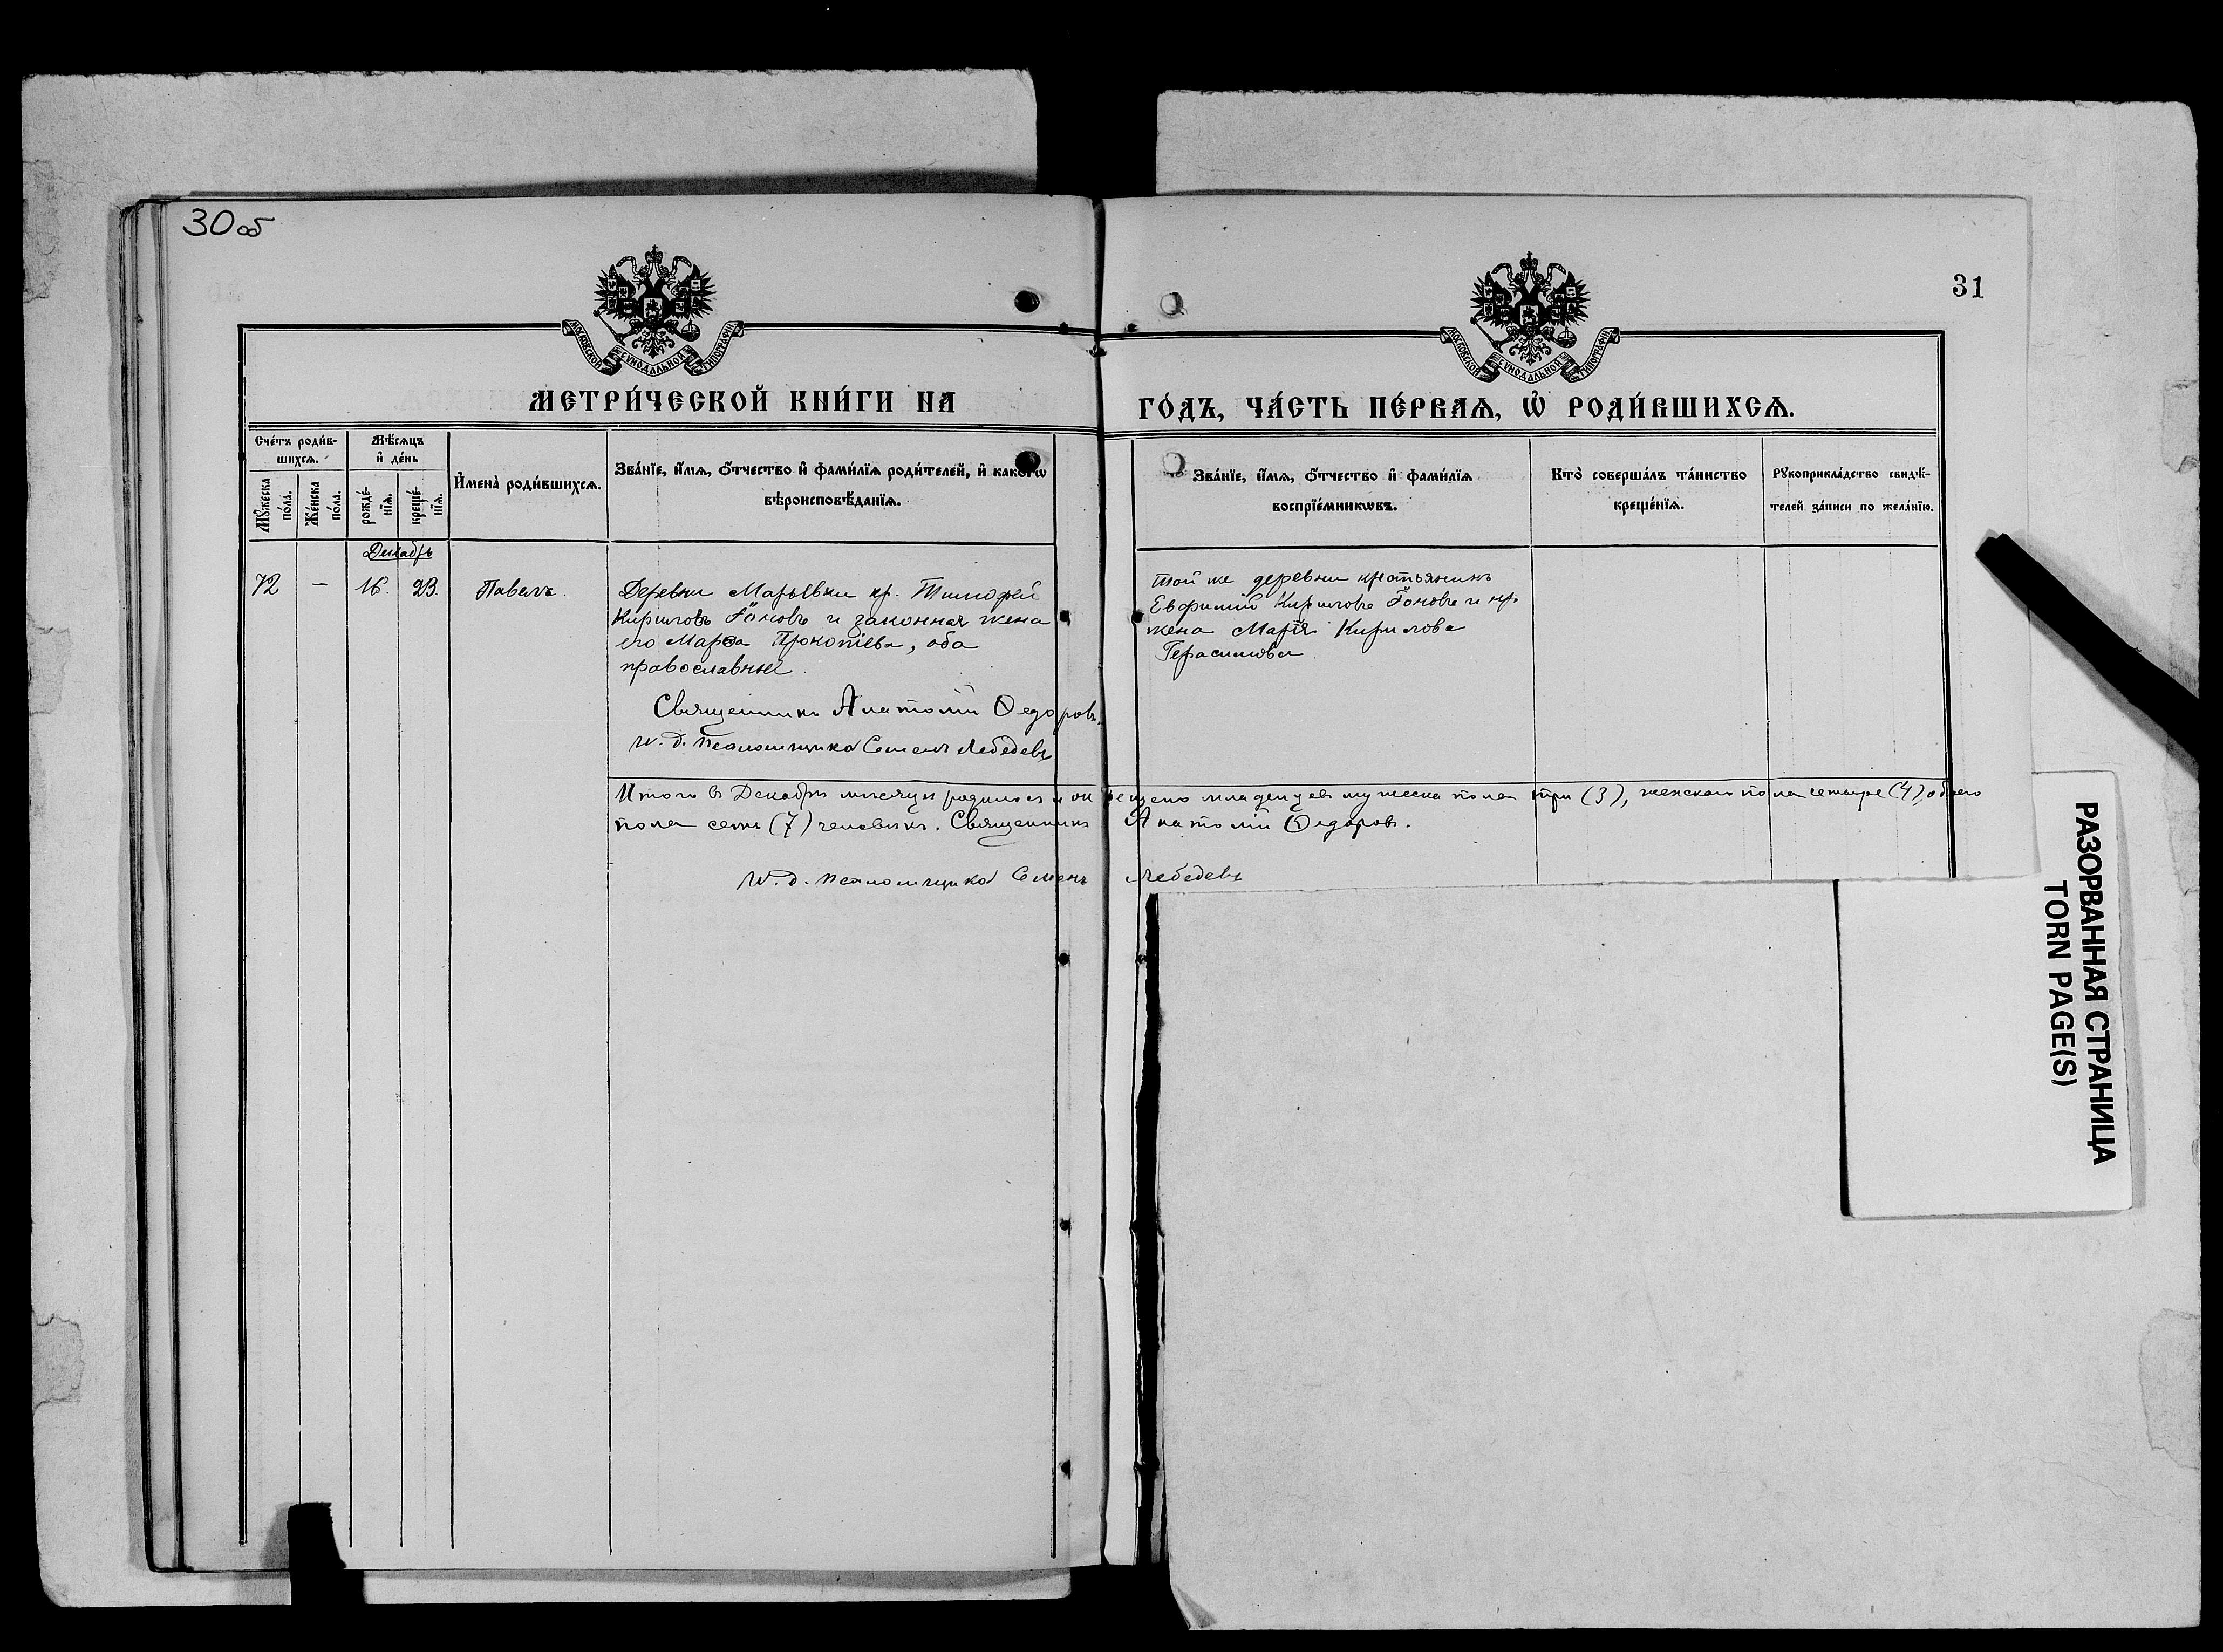 30 об
31
МОСКОВСКОЙ СѴНОДАЛЬНОЙ ТИПОГРАФІИ
МОСКОВСКОЙ СѴНОДАЛЬНОЙ ТИПОГРАФІИ
МЕТРИ́ЧЕСКОЙ КНИ́ГИ НА
ГО́ДЪ, ЧА́СТЬ ПЕ́РВАѦ, Ѡ҆ РОДИ́ВШИХСѦ.
Сче́тъ роди́в-
шихсѧ.
Мѣ́сѧцъ
и҆ де́нь
Мꙋ́жеска
по́ла.
Же́нска
по́ла.
рожде́-
нїѧ.
креще́-
нїѧ.
И҆мена̀ роди́вшихсѧ.
Зва́нїе, и҆́мѧ, ѻ҆́тчество и҆ фами́лїѧ роди́телей, и҆ како́гѡ
вѣроисповѣ́данїѧ.
Зва́нїе, и҆́мѧ, ѻ҆́тчество и҆ фами́лїѧ
воспрїе́мникѡвъ.
Кто̀ соверша́лъ та́инство
креще́нїѧ.
Рꙋкоприкла́дство свидѣ́-
телей за́писи по жела́нїю.
Декабрь
72 — 16. 23. Павелъ.
Деревни Марьевки кр. Тимофей
Кириловъ и законная жена
его Марѳа Прокопіева, оба
православные.
Священникъ Анатолій Ѳедоровъ.
И. д. псаломщика Семенъ Лебедевъ
Той же деревни крестьянинъ
Евфимій Кириловъ и кр.
жена Марія Кирилова
Герасимова
Итого въ Декабрѣ мѣсяцѣ родилось и окрещено младенцевъ мужеска пола три (3), женскаго пола четыре (4), обоего
пола семь (7) человѣкъ. Священникъ Анатолій Ѳедоровъ.
И. д. псаломщика Семенъ Лебедевъ
РАЗОРВАННАЯ СТРАНИЦА
TORN PAGE(S)